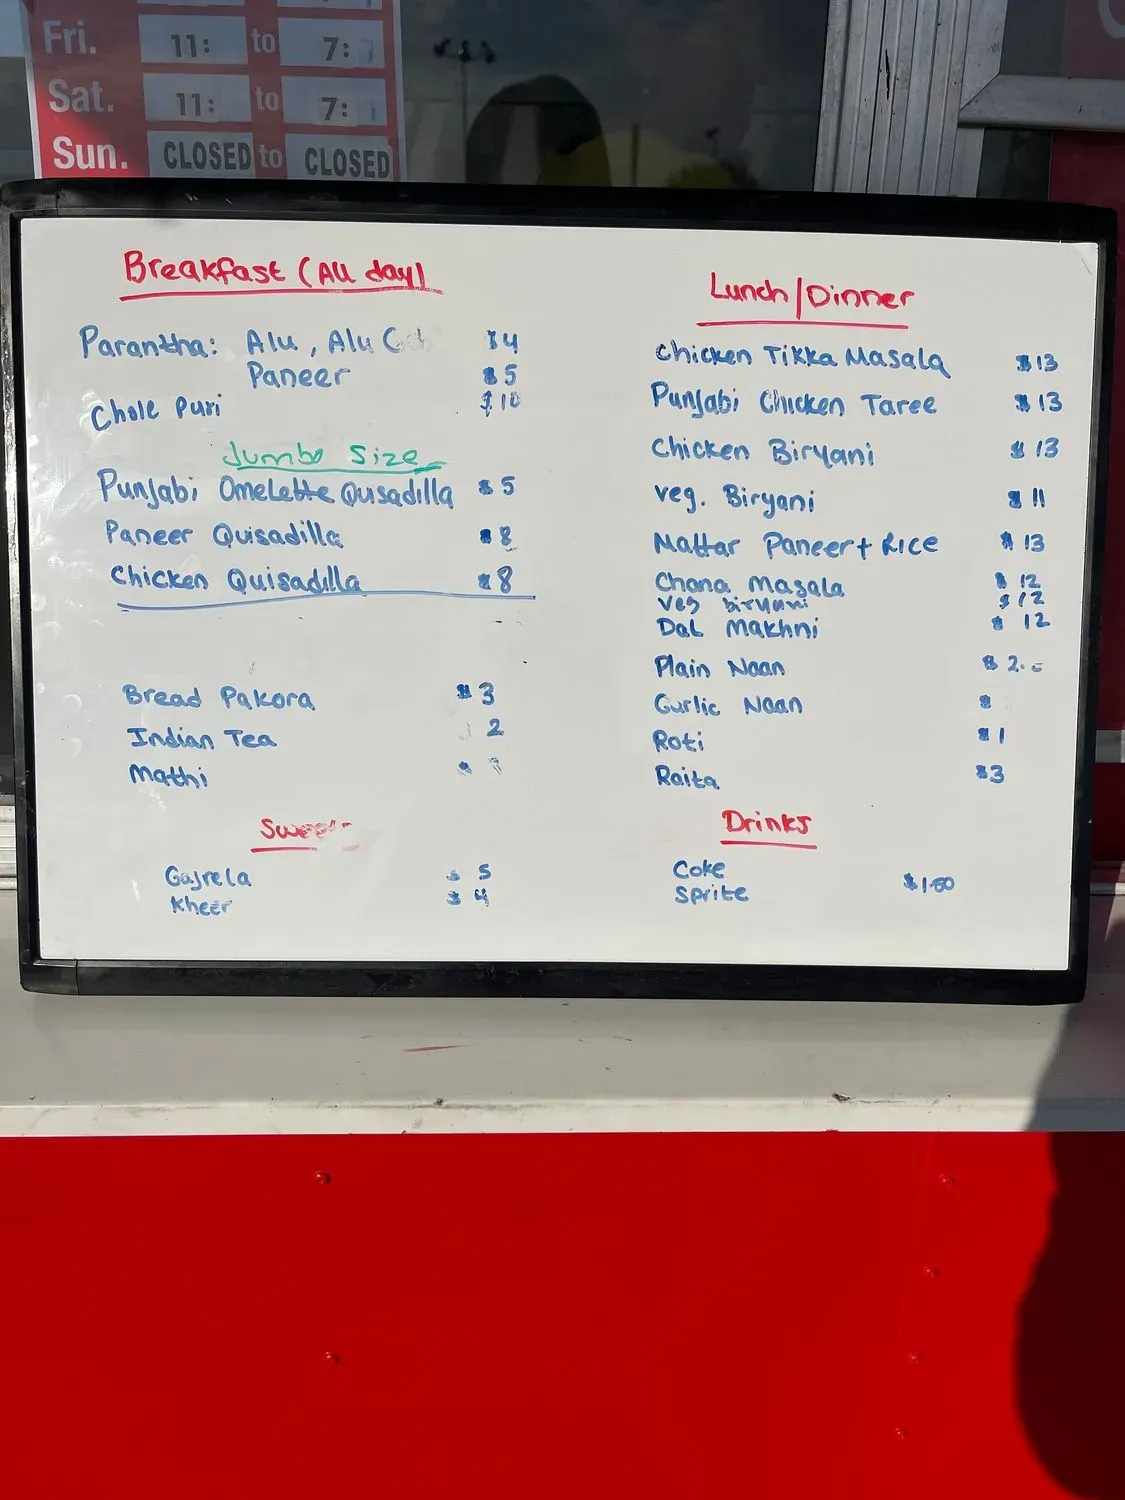 Fri. 11: to 7:
Sat. 11: to 7:
Sun. CLOSED to CLOSED
Breakfast (All day)
Parantha: Alu, Alu $4
Paneer $5
Chole Puri $10
Jumbo Size
Punjabi Omelette Qusadilla $5
Paneer Qusadilla $8
Chicken Quisadilla $8
Bread Pakora $3
Indian Tea 2
Mathi
Gajrela $5
Kheer $4
Lunch/Dinner
Chicken Tikka Masala $13
Punjabi Chicken Taree $13
Chicken Biryani $13
Veg. Biryani $11
Mattar Paneer + Rice $13
Chana Masala $12
Veg biryani $12
Dal Makhni $12
Plain Naan $2.
Gurlic Naan $
Roti $1
Raita $3
Drinks
Coke
Sprite $1.50